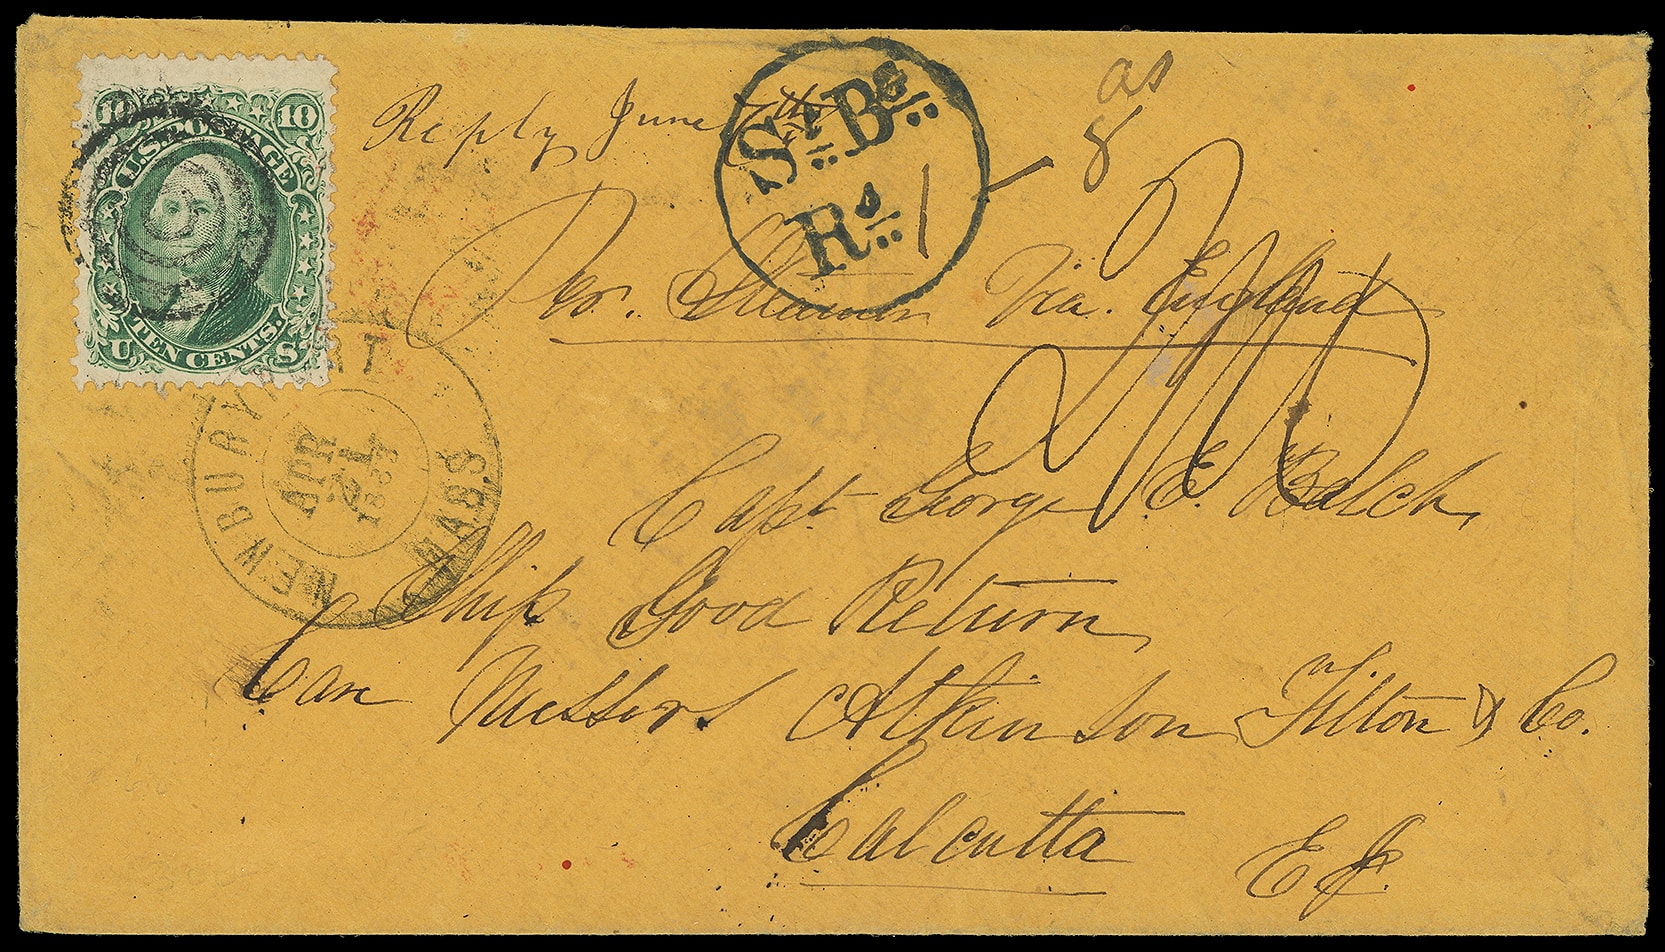 10 10
U.S. POSTAGE
TEN CENTS.
U S
Reply June 7th
St Bg
Rs
1
as
8
Per. Steamer Via. England
NEWBURYPORT MASS
APR
21
1863
Capt George E. Balch,
Ship Good Return,
Care Messers Atkinson Tilton & Co.
Calcutta
E.I.